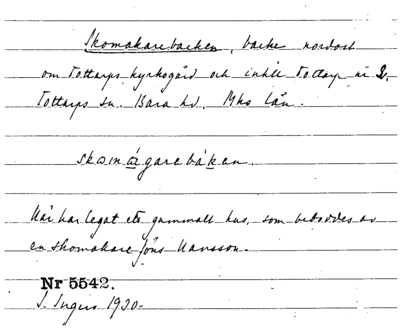 Skomakarebacken, backe nordost
om Tottarps kyrkogård och intill Tottarp nr 2.
Tottarps sn. Bara hd. Mhs län.
skomágarebák̲en.
Här har legat ett gammalt hus, som beboddes av
en skomakare Jöns Hansson.
Nr 5542.
S. Ingers 1930.